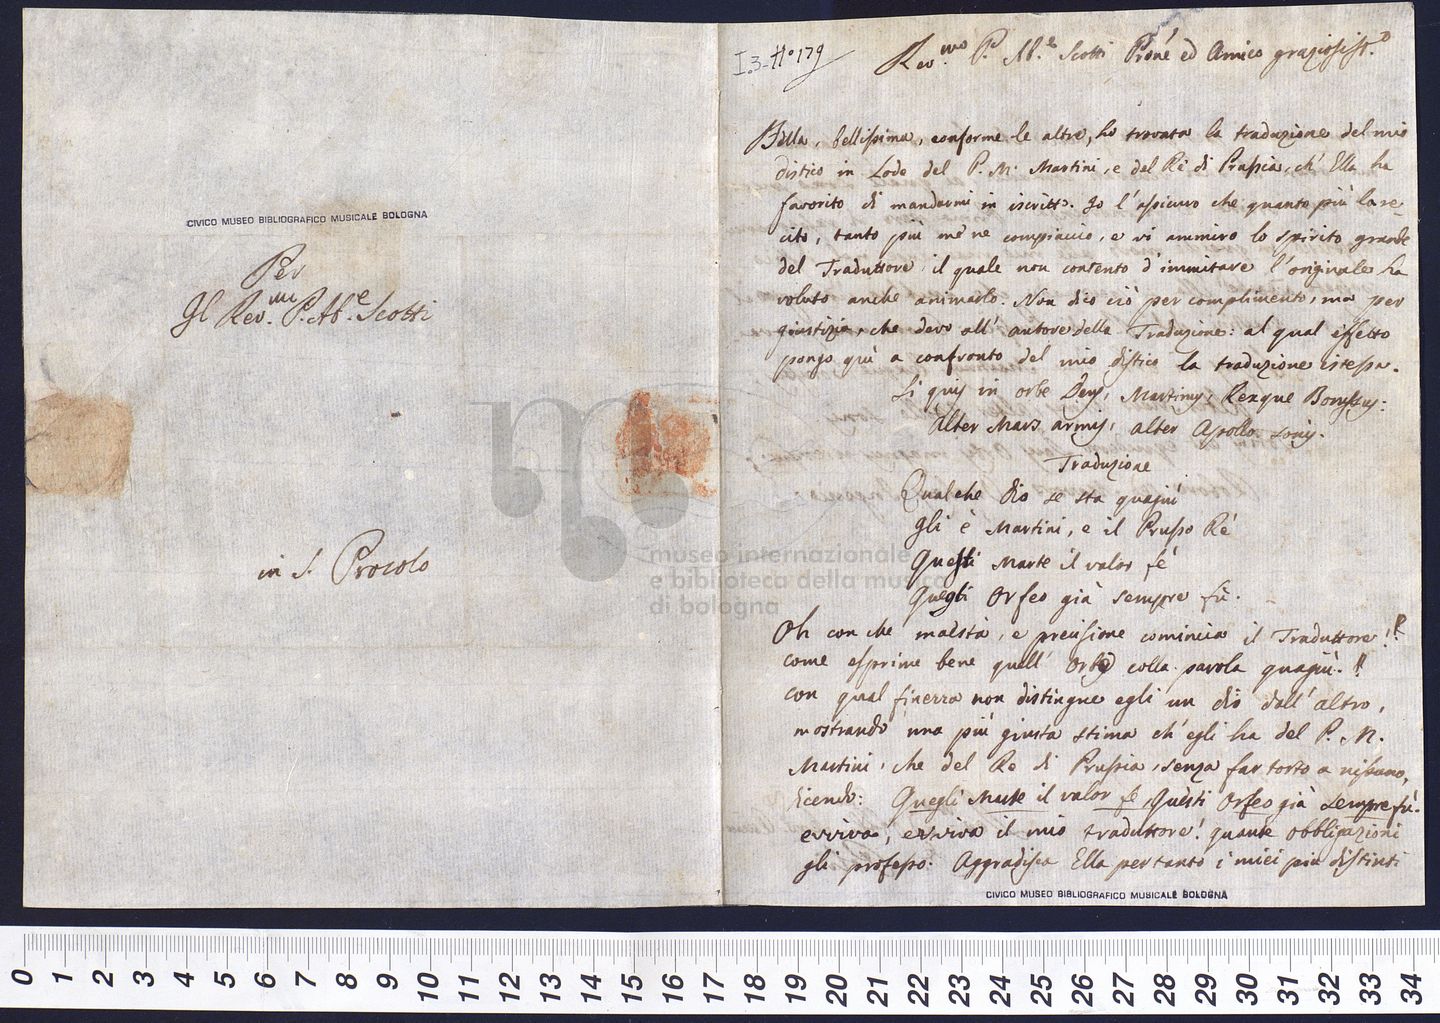 CIVICO MUSEO BIBLIOGRAFICO MUSICALE BOLOGNA
Per
Il Rev.mo P. Ab.e Scotti
in S. Procolo
I.3-H°179
Rev.mo P. Ab.e Scotti Prōne ed Amico graziosiss.o
Bella, bellissima, conforme le altre, ho trovata la traduzione del mio
distico in Lode del P. M. Martini, e del Rè di Prussia, ch' Ella ha
favorito di mandarmi in iscritto. Io l'assicuro che quanto più la re-
cito, tanto più me ne compiaccio, e vi ammiro lo spirito grande
del Traduttore il quale non contento d'immitare l'originale ha
voluto anche animarlo. Non dico ciò per complimento, ma per
giustizia, che devo all' autore della Traduzione: al qual effetto
pongo quì a confronto del mio distico la traduzione istessa.
Si quis in orbe Deus, Martinus, Rexque Borussus:
Alter Mars armis, alter Apollo sonis.
Traduzione
Qualche Dio se sta quagiù
gli è Martini, e il Prusso Rè
Questi Marte il valor fè
Quegli Orfeo già sempre fù.
Oh con che maestà, e precisione comincia il Traduttore!!
come esprime bene quell' orbe colla parola quagiù!!
con qual finezza non distingue egli un Dio dall' altro,
mostrando una più giusta stima ch' egli ha del P. M.
Martini, che del Re di Prussia, senza far torto a nissuno,
dicendo: Quegli Marte il valor fe, Questi Orfeo già sempre fù.
evviva, evviva il mio traduttore! quante obbligazioni
gli professo. Aggradisca Ella pertanto i miei più distinti
CIVICO MUSEO BIBLIOGRAFICO MUSICALE BOLOGNA
museo internazionale
e biblioteca della musica
di bologna
0 1 2 3 4 5 6 7 8 9 10 11 12 13 14 15 16 17 18 19 20 21 22 23 24 25 26 27 28 29 30 31 32 33 34